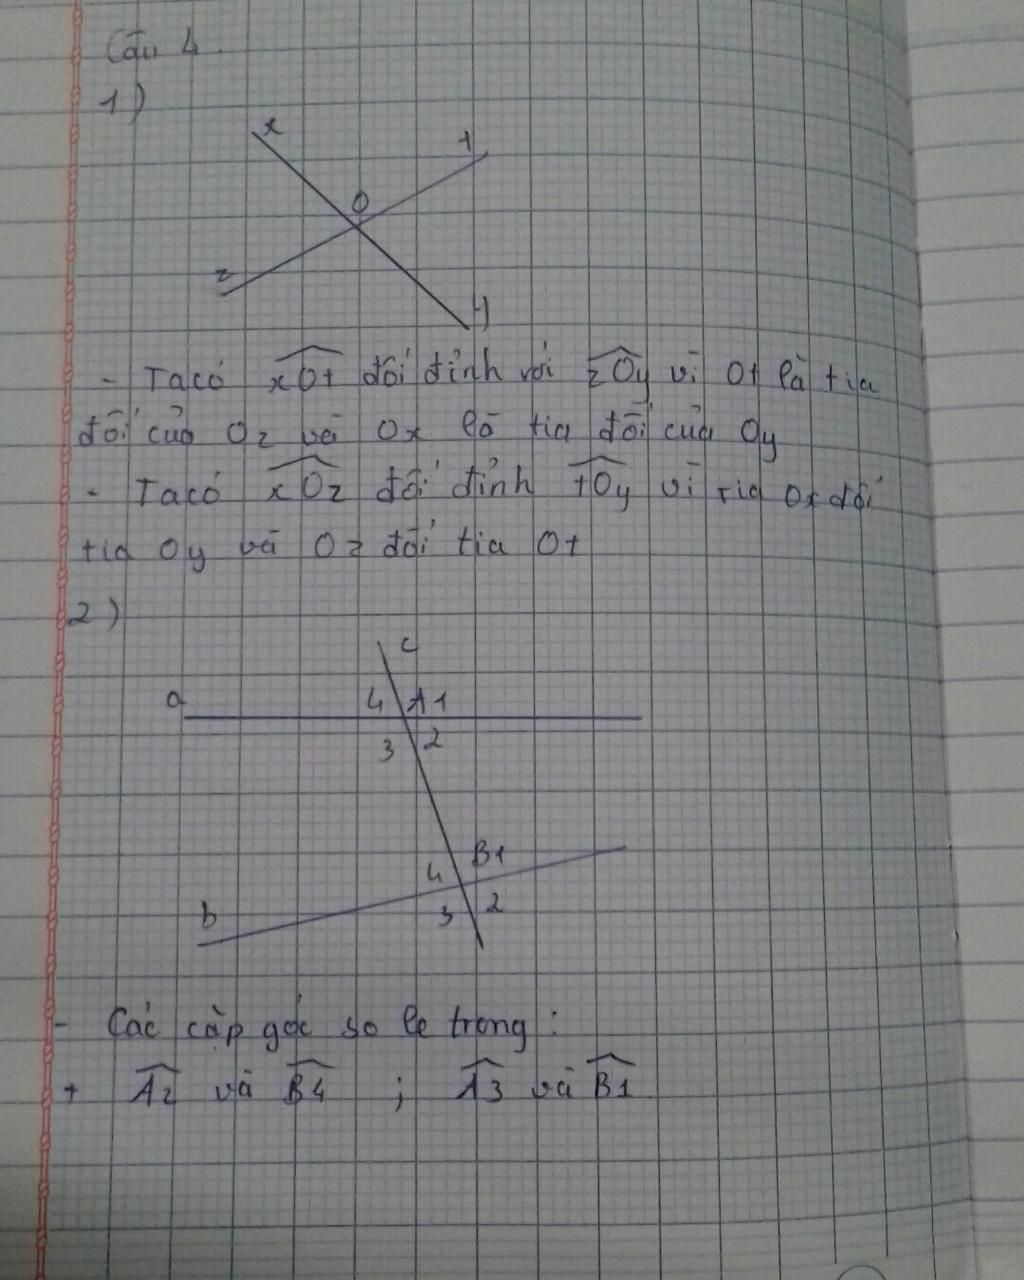 Câu 4.
1)
x
t
O
z
y
- Ta có xOt đối đỉnh với zOy vì Ot là tia
đối của Oz và Ox là tia đối của Oy
- Ta có xOz đối đỉnh tOy vì tia Ox đối
tia Oy và Oz đối tia Ot
2)
c
a 4 A1
3 2
4 B1
b 3 2
- Các cặp góc so le trong:
+ A2 và B4 ; A3 và B1